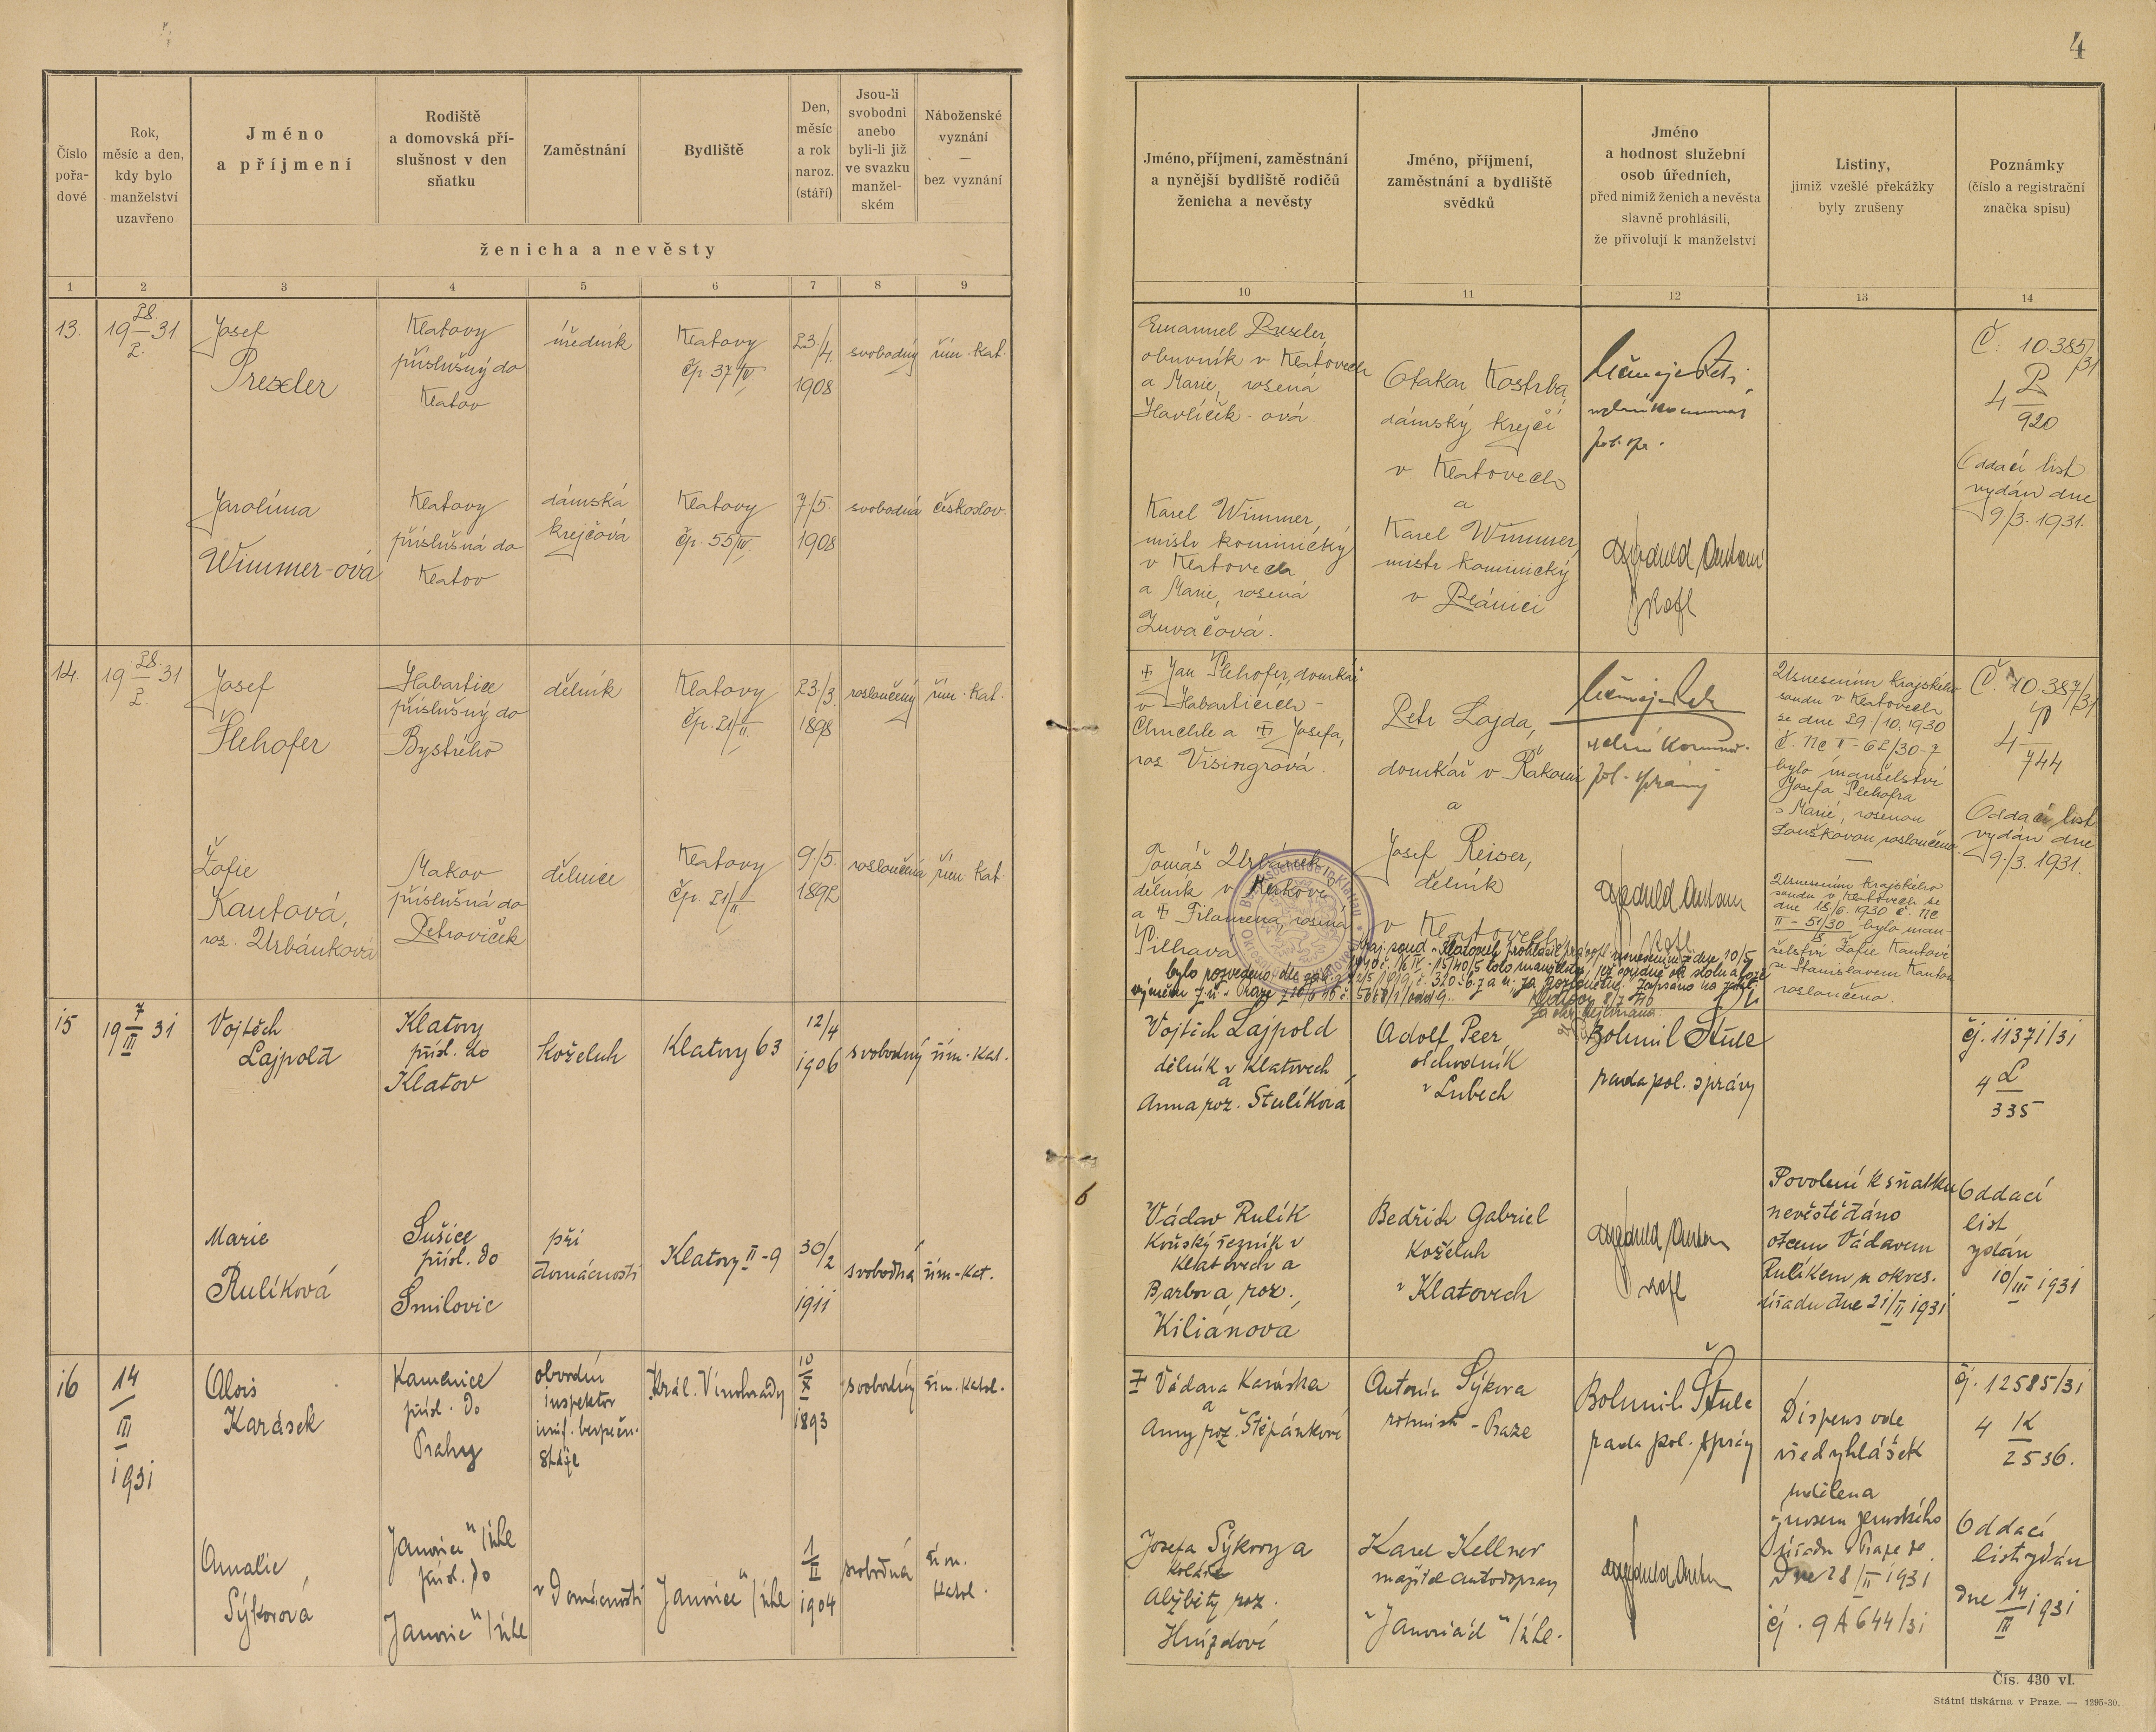 4
Číslo pořa- dové
Rok, měsíc a den, kdy bylo manželství uzavřeno
Jméno a příjmení
Rodiště a domovská pří- slušnost v den sňatku
Zaměstnání
Bydliště
Den, měsíc a rok naroz. (stáří)
Jsou-li svobodni anebo byli-li již ve svazku manžel- ském
Náboženské vyznání — bez vyznání
ženicha a nevěsty
Jméno, příjmení, zaměstnání a nynější bydliště rodičů ženicha a nevěsty
Jméno, příjmení, zaměstnání a bydliště svědků
Jméno a hodnost služební osob úředních, před nimiž ženich a nevěsta slavně prohlásili, že přivolují k manželství
Listiny, jimiž vzešlé překážky byly zrušeny
Poznámky (číslo a registrační značka spisu)
1 2 3 4 5 6 7 8 9 10 11 12 13 14
13.
19 28/2. 31
Josef
Preseler
Klatovy
příslušný do
Klatov
úředník
Klatovy
čp. 37/IV.
23/4.
1908
svobodný
řím. kat.
Emanuel Preseler,
obuvník v Klatovech
a Marie, rosená
Havlíček-ová.
Otakar Kostrba,
dámský krejčí
v Klatovech
a
Karel Wimmer,
mistr kominický
v Plánici
pol. spr.
Č. 10.385/31
4 P/920
Oddací list
vydán dne
9./3. 1931.
Jarolíma
Wimmer-ová
Klatovy
příslušná do
Klatov
dámská
krejčová
Klatovy
čp. 55/IV.
7/5.
1908
svobodná
českoslov.
Karel Wimmer,
mistr kominický
v Klatovech
a Marie, rosená
Zuvačová.
14.
19 28/2. 31
Josef
Šlehofer
Habartice
příslušný do
Bystrého
dělník
Klatovy
čp. 21/II.
23/3.
1898
rosloučený
řím. kat.
+ Jan Šlehofer, domkář
v Habarticích-
Chuchle a + Josefa,
ros. Visingrová.
Petr Lajda,
domkář v
a
Josef Reiser,
dělník
v Klatovech
pol. správy
Usnesením krajského
soudu v Klatovech
ze dne 29/10. 1930
č. Nc I-62/30-7
bylo manželství
Josefa Šlehofra
s Marií, rosenou
Louškovou rosloučeno.
Č. 10.387/31
4
744
Oddací list
vydán dne
9./3. 1931.
Žofie
Kautová,
ros. Urbánková
Makov
příslušná do
Petroviček
dělnice
Klatovy
čp. 21/II
9./5.
1892
rosloučená
řím. kat.
Tomáš Urbánek
dělník v Makově
a + Filomena, rosená
Pilhavá
Usnesením krajského
soudu v Klatovech ze
dne 18/6. 1930 č. Nc
II-51/30 bylo man-
želství Žofie Kautové
se Stanislavem Kautou
rosloučeno.
Bezirksbehörde in Klattau
bylo rozvedeno dle
15
19 7/III 31
Vojtěch
Lajpold
Klatovy
přísl. do
Klatov
koželuh
Klatovy 63
12/4
1906
svobodný
řím. kat.
Vojtěch Lajpold
dělník v Klatovech
a
Anna roz. Stulíková
Adolf Peer
obchodník
v Lubech
Bohumil Štule
rada pol. správy
čj. 11371/31
4 L/335
Marie
Rulíková
Sušice
přísl. do
Smilovic
při
domácnosti
Klatovy II-9
30/2
1911
svobodná
řím-kat.
6
Václav Rulík
Koňský řezník v
Klatovech a
Barbora roz.
Kiliánova
Bedřich Gabriel
Koželuh
v Klatovech
Povolení k sňatku
nevěstě dáno
otcem Václavem
Rulíkem u okres.
úřadu dne 21/II 1931
Oddací
list
vydán
10/III 1931
16
14/III 1931
Alois
Karásek
Kamenice
přísl. do
Prahy
obvodní
inspektor
unif. bezpečn.
stráže
Král. Vinohrady
10/X
1893
svobodný
řím. katol.
+ Václava Karáska
a
Anny roz. Štěpánkové
Antonín Sýkora
rotmistr - Praze
Bohumil Štule
rada pol. správy
Dispens ode
všech vyhlášek
udělena
výnosem zemského
úřadu v Praze ze
dne 28/II 1931
čj. 9A 644/31
čj. 12585/31
4 K/2536.
Oddací
list vydán
dne 14/III 1931
Amalie
Sýkorová
Janovice n/Úhl
přísl. do
Janovic n/Úhl
v domácnosti
Janovice n/Úhl
1/II
1904
svobodná
řím. katol.
Josefa Sýkory a
koláře
Alžběty roz.
Hnízdové
Karel Kellner
majitel autodopravy
v Janovicích n/Úhl.
Čís. 430 vl.
Státní tiskárna v Praze. — 1295-30.